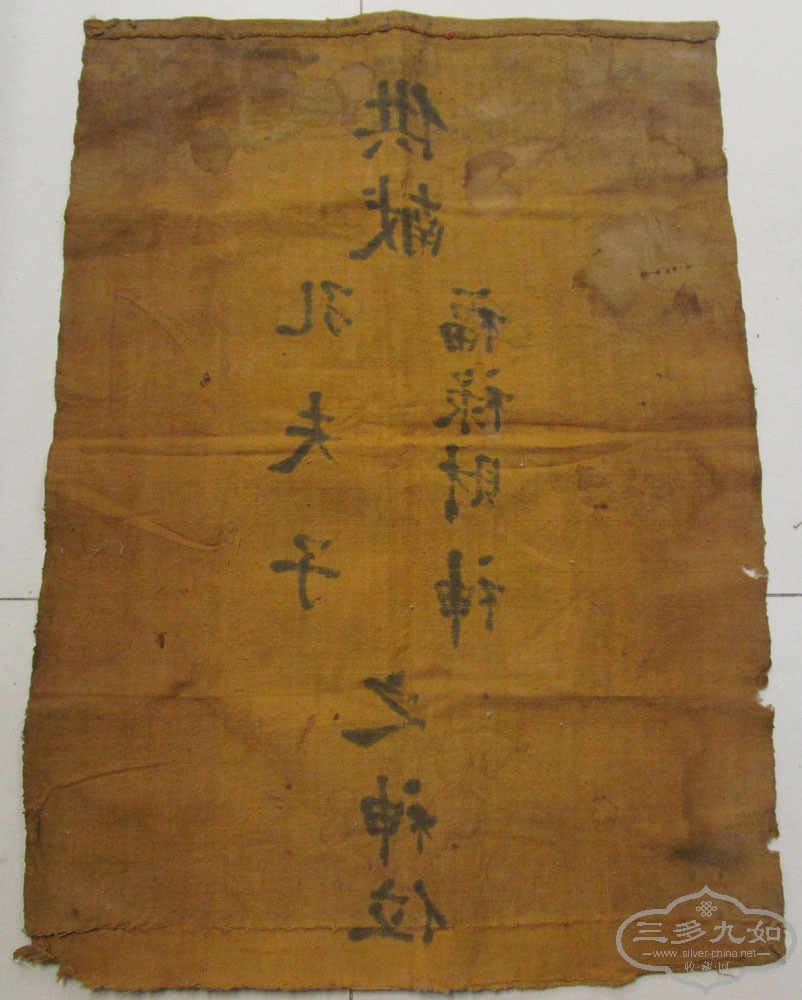 供献
孔夫子
福禄財神
之神位
三多九如
www.silver-china.net
收·藏·网